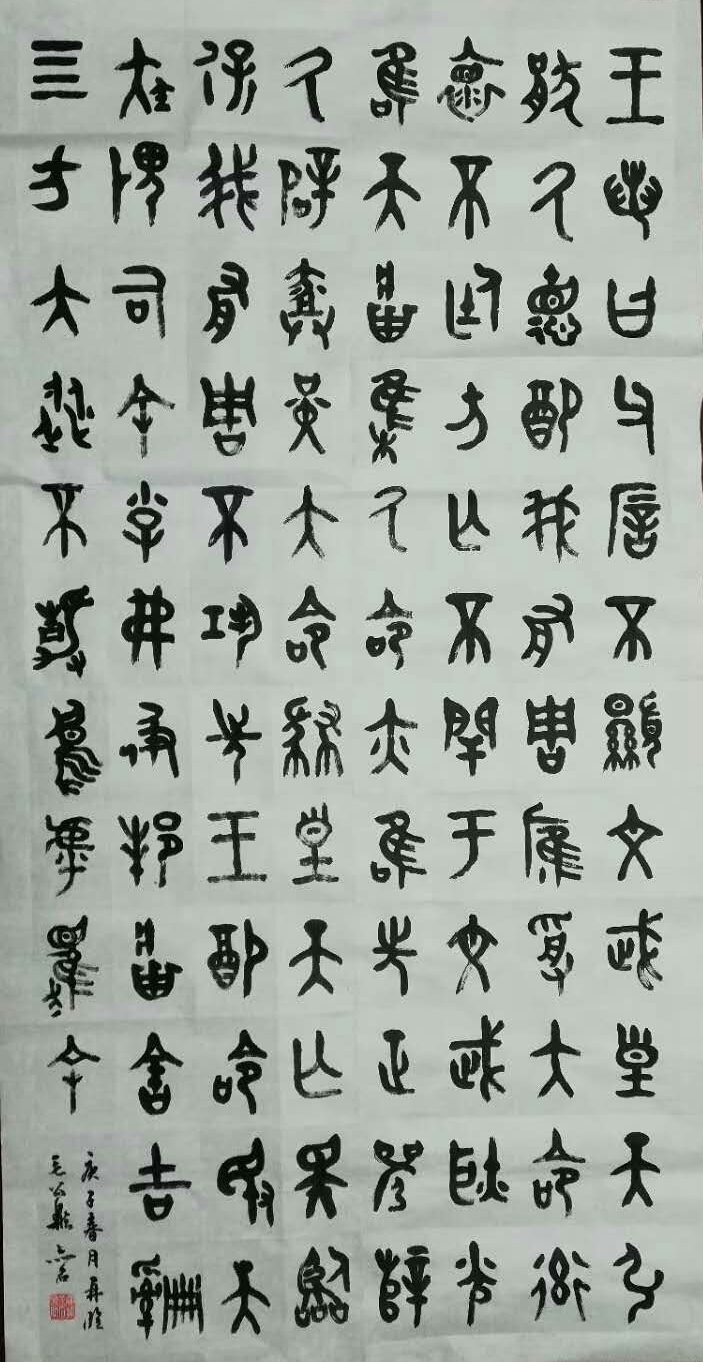 王若曰父厝不顯文武皇天引
猒厥德配我有周膺受大命率
懷不廷方亡不閈于文武耿光
唯天將集厥命亦唯先正襄辥
厥辟勞堇大命肆皇天亡斁臨
保我有周不巩先王配命敃天
疾畏司余小子弗彶邦將害吉
四方大縱不靜烏虖趯余
庚子春月再臨
毛公鼎